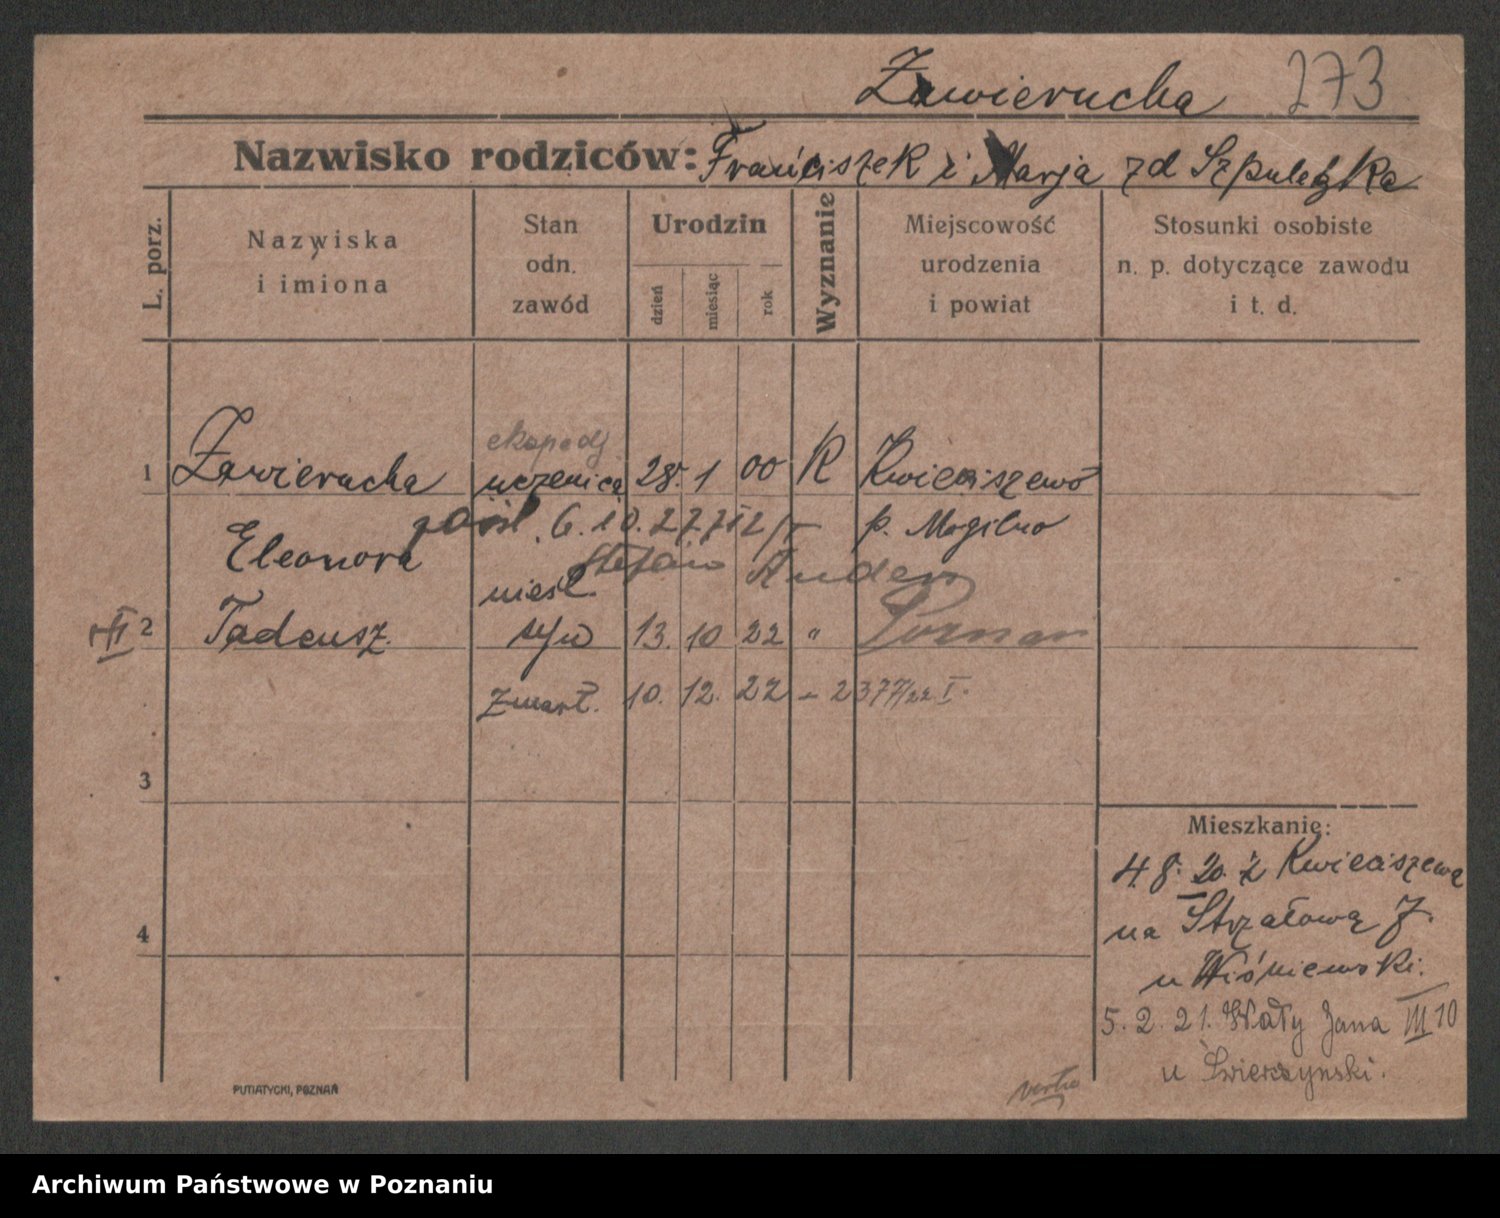 Zawierucha 273
Nazwisko rodziców: Franciszek i Marja zd Szpulecka
L. porz.
Nazwiska
i imiona
Stan
odn.
zawód
Urodzin
dzień
miesiąc
rok
Wyznanie
Miejscowość
urodzenia
i powiat
Stosunki osobiste
n. p. dotyczące zawodu
i t. d.
eksped
1 Zawierucha uczenica 28. 1 00 R Kwieciszewo
6.10.27 p. Mogilno
Eleonora
Stefan
nieśl.
2 Tadeusz. syn 13. 10 22 " Poznań
zmarł. 10. 12. 22 - 2377/22 I.
3
4
Mieszkanie:
4 8. 20. z Kwieciszewa
na Strzałową 7.
u Wiśniewski.
5. 2. 21. Wały Jana III 10
u Świerczynski.
verte
PUTIATYCKI, POZNAŃ
Archiwum Państwowe w Poznaniu